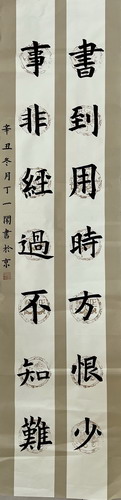 書到用時方恨少
事非經過不知難
辛丑冬月丁一閣書於京